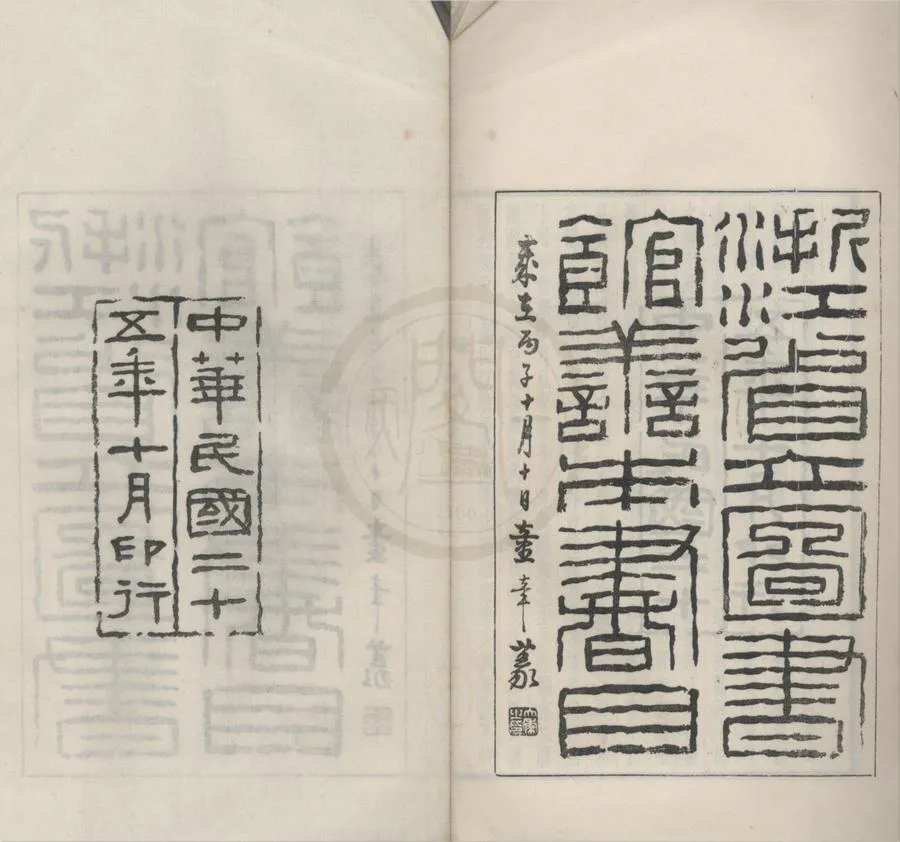 浙江省立圖書
館善本書目
在丙子十月十日童 篆
中華民國二十
五年十月印行